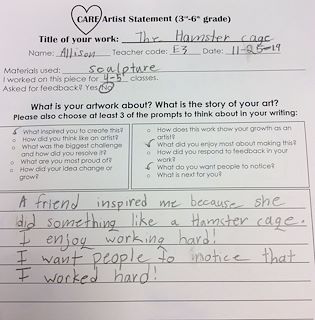 CARE Artist Statement (3rd-6th grade)
Title of your work: The Hamster cage
Name: Allison Teacher code: E3 Date: 11-25-19
Materials used: sculpture
I worked on this piece for 4-5 classes.
Asked for feedback? Yes/No
What is your artwork about? What is the story of your art?
Please also choose at least 3 of the prompts to think about in your writing:
What inspired you to create this?
How did you think like an artist?
What was the biggest challenge
and how did you resolve it?
What are you most proud of?
How did your idea change or
grow?
How does this work show your growth as an
artist?
What did you enjoy most about making this?
How did you respond to feedback in your
work?
What do you want people to notice?
What is next for you?
A friend inspired me because she
did something like a Hamster cage.
I enjoy working hard!
I want people to notice that
I worked hard!